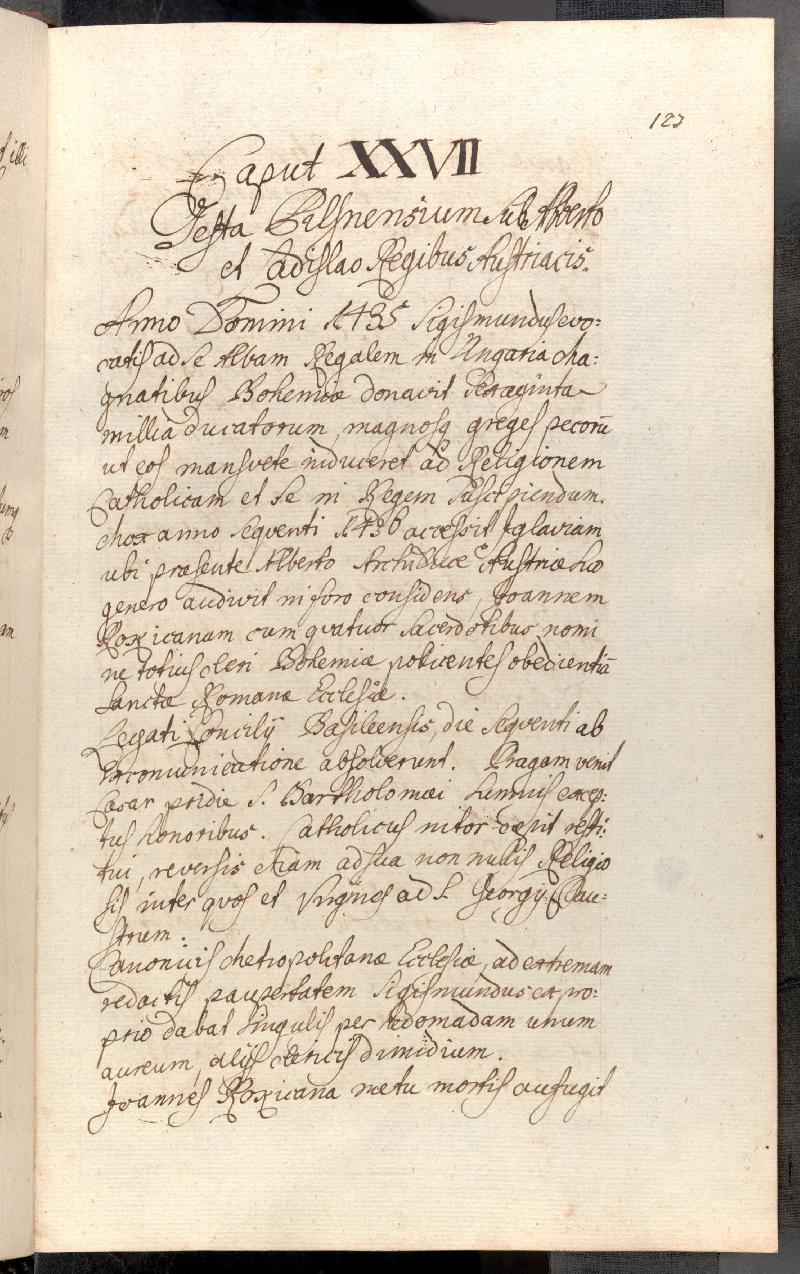 123
Caput XXVII
Gesta Pilsnensium sub Alberto
et Ladislao Regibus Austriacis.
Anno Domini 1435 Sigismundus evo:
catis ad se Albam Regalem in Ungaria Ma:
gnatibus Bohemiæ donavit sexaginta
millia ducatorum, magnosq greges pecorū
ut eos mansvete induceret ad Religionem
Catholicam et se in Regem suscipiendum.
Mox anno seqventi 1436 accessit Iglaviam
ubi præsente Alberto Archiduce Austriæ suo
genero audivit in foro considens, Joannem
Roxicanam cum qvatuor sacerdotibus nomi
ne totius cleri Bohemiæ policentes obedientiā
Sanctæ Romanæ Ecclesiæ.
Legati Concilÿ Basileensis, die seqventi ab
excomunicatione absolverunt. Pragam venit
Cæsar pridie S. Bartholomæi summis excep:
tus honoribus. Catholicus nitor cæpit resti:
tui, reversis etiam ad sua non nullis Religio
sis inter qvos et Virgines ad S. Georgÿ Clau:
strum.
Canonicis Metropolitanæ Ecclesiæ, ad extremam
redactis paupertatem Sigismundus ex pro:
prio dabat singulis per hedomadam unum
aureum, alÿs clericis dimidium.
Joannes Roxicana metu mortis aufugit